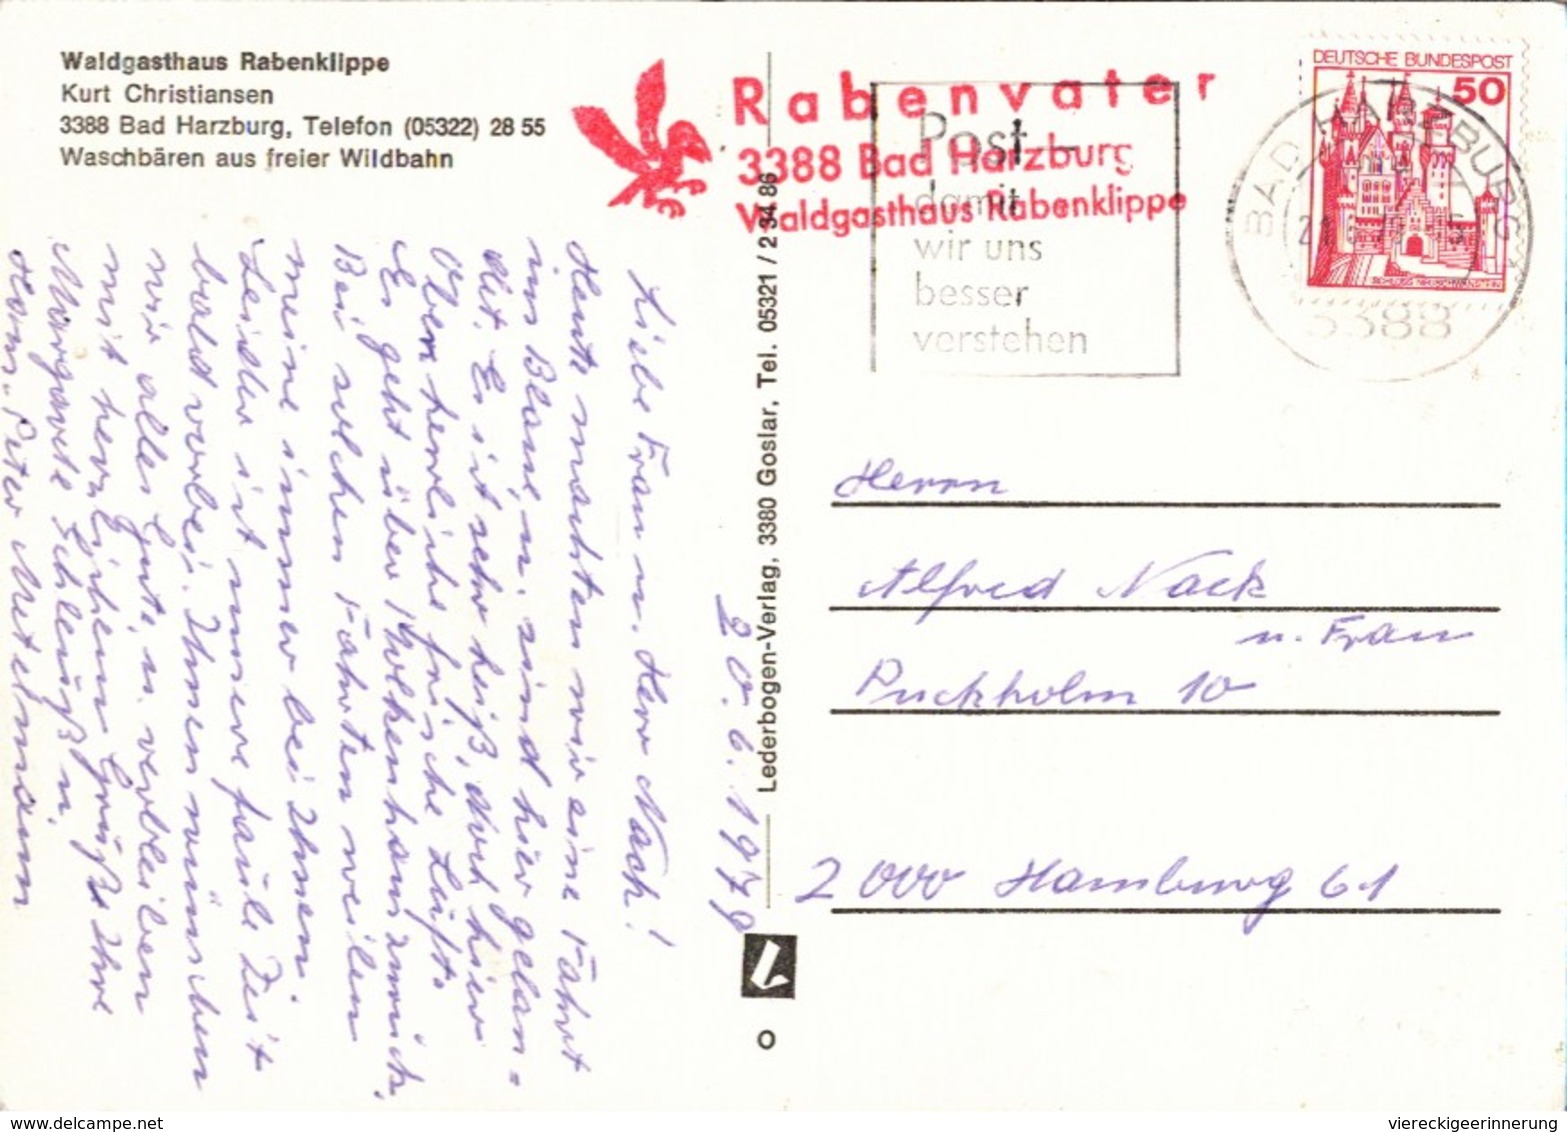 Waldgasthaus Rabenklippe
Kurt Christiansen
3388 Bad Harzburg, Telefon (05322) 28 55
Waschbären aus freier Wildbahn
Rabenvater
3388 Bad Harzburg
Waldgasthaus Rabenklippe
Post -
damit
wir uns
besser
verstehen
DEUTSCHE BUNDESPOST
50
SCHLOSS NEUSCHWANSTEIN
BAD HARZBURG
3388
Lederbogen-Verlag, 3380 Goslar, Tel. 05321 / 2 34 86
20.6.1979
Liebe Frau u. Herr Nack!
Heute machten wir eine Fahrt
ins Blaue, u. sind hier gelan-
det. Es ist sehr heiß, doch hier
oben herrliche frische Luft.
Es geht über Wolkenhaus zurück.
Bei solchen Fahrten weilen
meine immer bei Ihnen.
Leider ist unsere faule Zeit
bald vorbei. Ihnen wünschen
wir alles Gute, u. verbleiben
mit herzlichem Gruß Ihre
Margarete Schleuß u.
Hans-Peter
Herrn
Alfred Nack
u. Frau
Puckholm 10
2000 Hamburg 61
O
viereckigeerinnerung